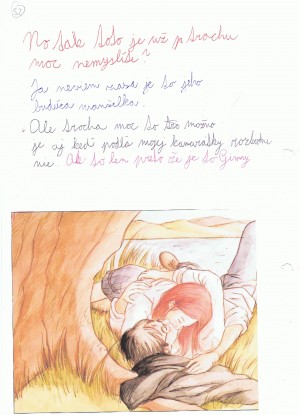 57
No tak toto je už p trochu
moc nemyslíte?
Ja neviem veď je to jeho
budúca manželka.
Ale trocha moc to tao možno
je aj keď podľa mojej kamarátky rozhodne
nie. Ak to len preto že je to Ginny